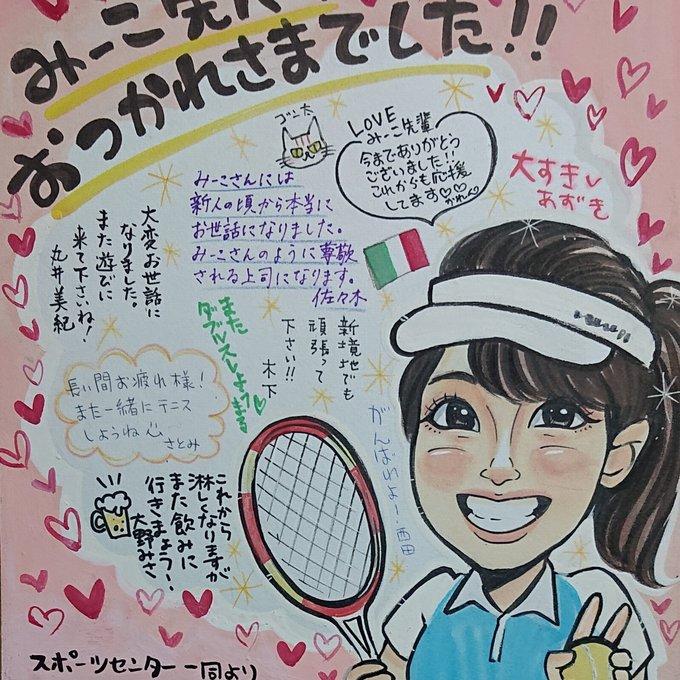 みーこ先
おつかれさまでした!!
ゴン太
LOVE
みーこ先輩
今までありがとう
ございました!!
これからも応援
してます♡♡
かれん
大すき
あずき
みーこさんには
新人の頃から本当に
お世話になりました。
みーこさんのように尊敬
される上司になります。
佐々木
大変お世話に
なりました。
また遊びに
来て下さいね!
丸井美紀
また
ダブルスしよう
まる
新境地でも
頑張って
下さい!!
木下
長い間お疲れ様!
また一緒にテニス
しようね
さとみ
がんばれよー!西田
これから
淋しくなりますが
また飲みに
行きましょう!
大野みさ
スポーツセンター一同より